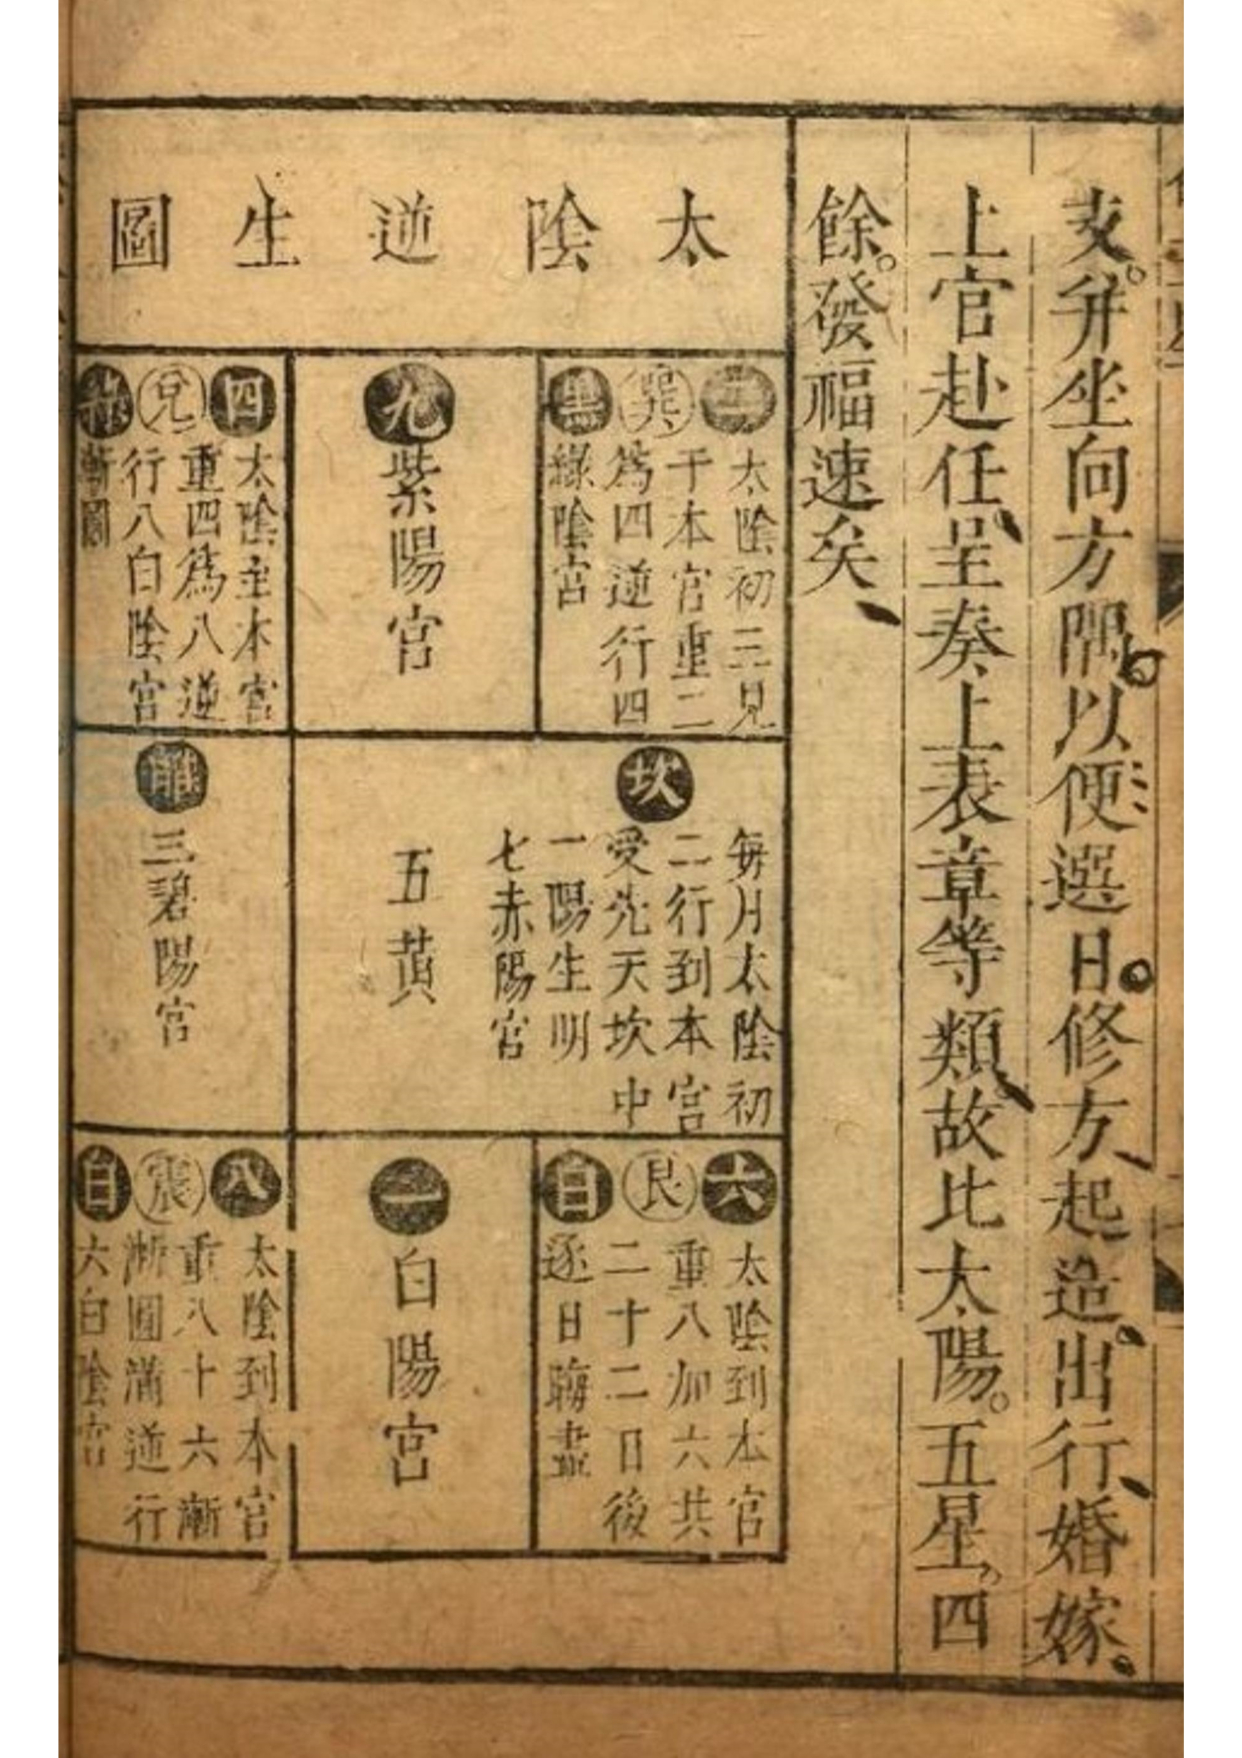 支。并坐向方隅。以便選日。修方、起造。出行、婚嫁。
上官赴任、呈奏上表章等類、故比太陽。五星。四
餘。發福速矣、
太陰逆生圖
二巽黑
太陰初三見
于本宮重二
為四逆行四
綠陰宮
九
紫陽宮
四兌綠
太陰至本宮
重四為八逆
行八白陰宮
漸圓
坎
每月太陰初
二行到本宮
受先天坎中
一陽生明
七赤陽宮
五黃
離
三碧陽宮
六艮白
太陰到本宮
重八加六共
二十二日後
逐日晦盡
一
白陽宮
八震白
太陰到本宮
重八十六漸
漸圓滿逆行
六白陰宮